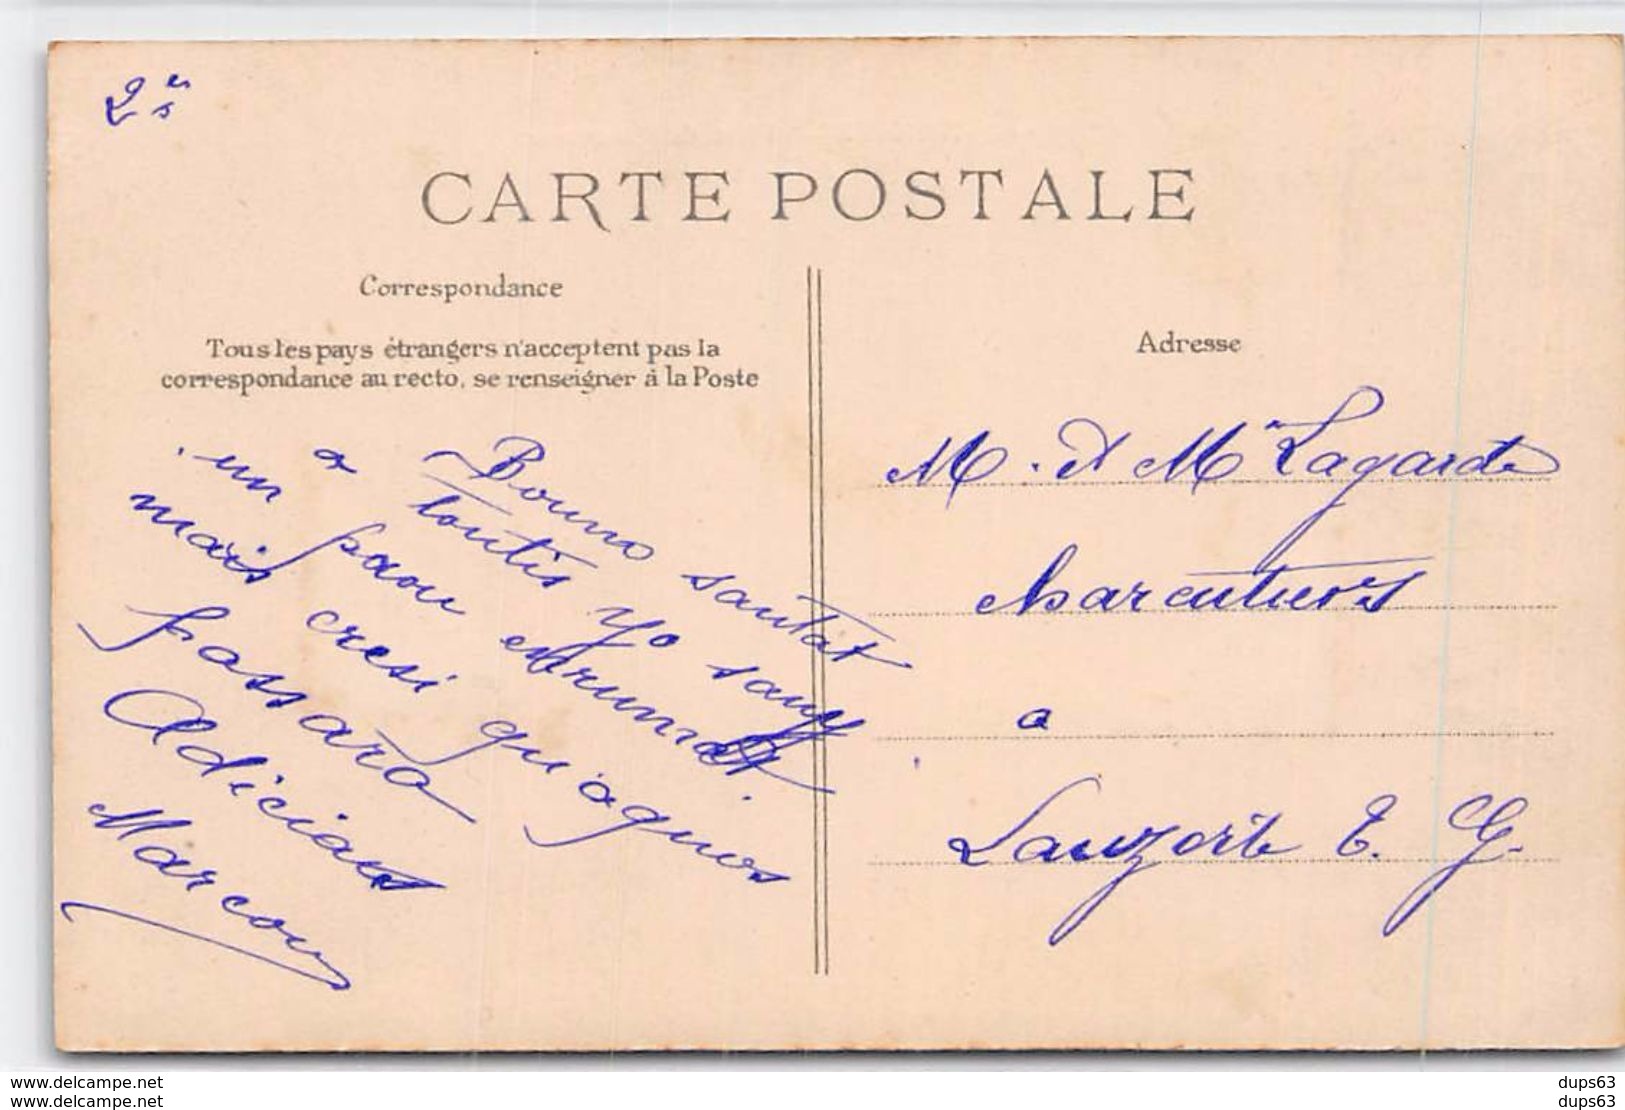 2es
CARTE POSTALE
Correspondance
Tous les pays étrangers n'acceptent pas la
correspondance au recto, se renseigner à la Poste
Bouno santat
a toutis yo sauy
un paou enrumat.
mais cresi qu'aquos
passara
Adicias
Marcou
Adresse
M. et Me Lagarde
charcutiers
a
Lauzerte T. G.
www.delcampe.net
www.delcampe.net
dups63
dups63